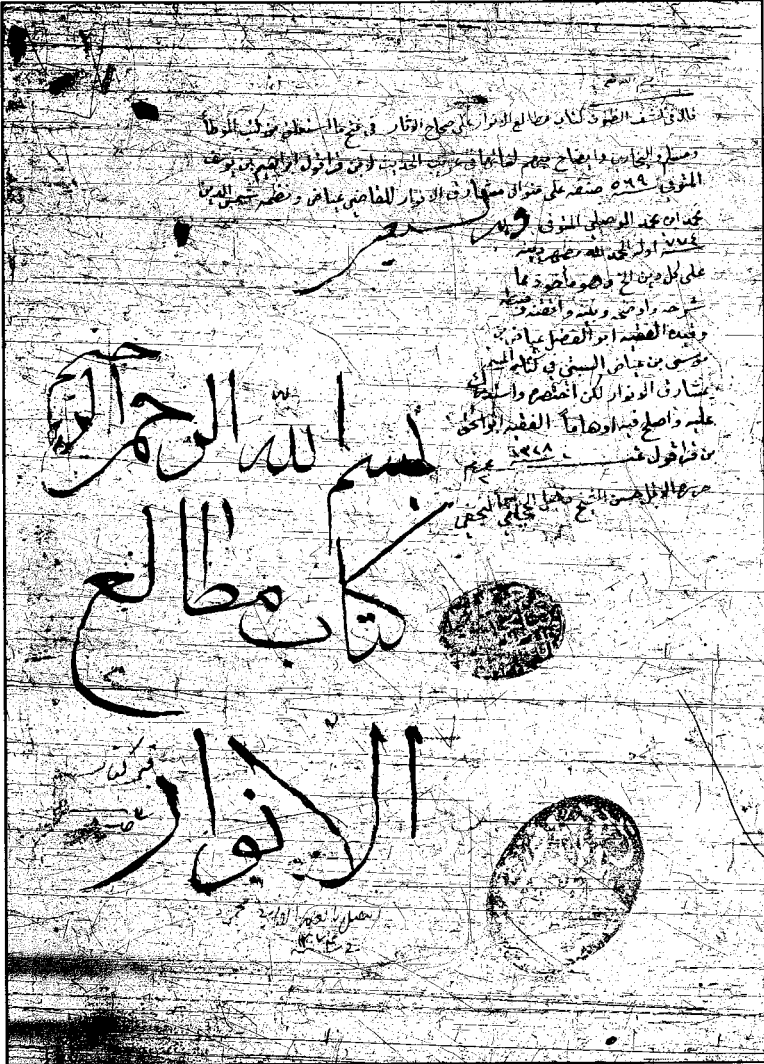 قال في كشف الظنون كتاب مطالع الانوار على صحاح الاثار في فتح ما استغلق من كتاب الموطأ
ومسلم والبخاري وايضاح مبهم لغاتها في غريب الحديث لابن قرقول ابراهيم بن يوسف
المتوفى سنة ٥٦٩ صنفه على منوال مشارق الانوار للقاضي عياض ونظمه شمس الدين
محمد بن محمد الموصلي المتوفى
سنة ٧٧٤ اوله الحمد لله مظهر دينه
على كل دين الخ وهو مأخوذ مما
شرحه واوضحه وبينه واتقنه وضبطه
وقيده الفقيه ابو الفضل عياض بن
موسى بن عياض السبتي في كتابه المسمى
بمشارق الانوار لكن اختصره واستدرك
عليه واصلح فيه اوهاماً الفقيه ابو اسحق
بن قرقول ١٣٢٨ محرم
بسم الله الرحمن الرحيم
كتاب مطالع
الانوار